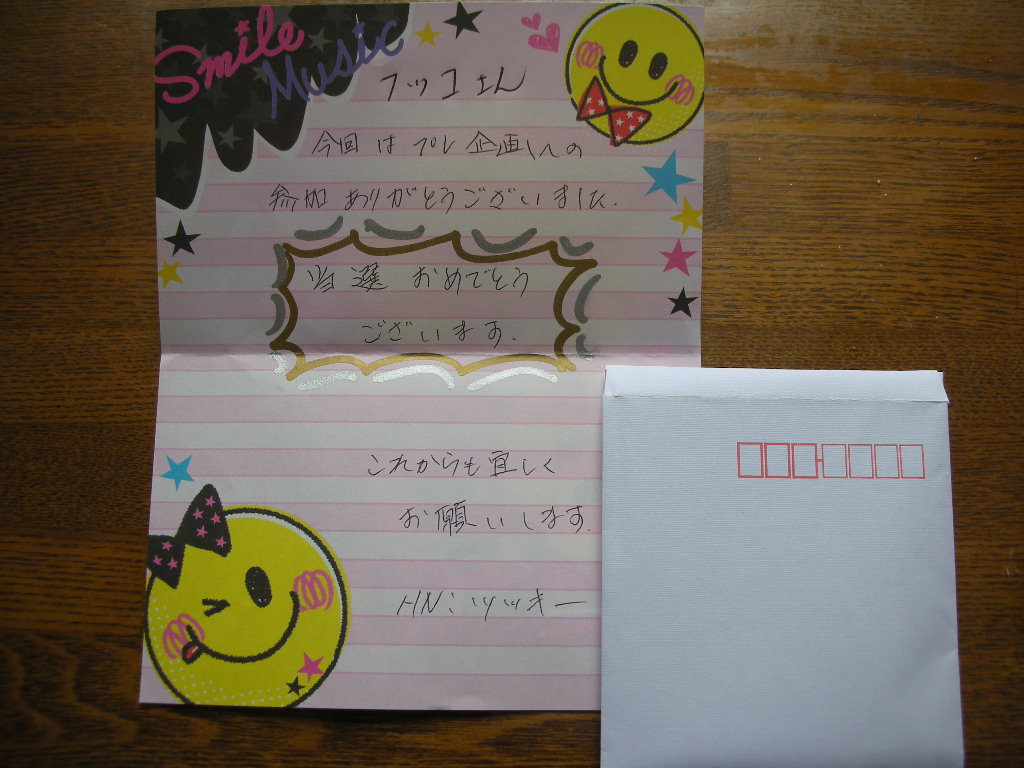 Smile
Music
フッコさん
今回は プレ企画への
参加 ありがとうございました.
当選 おめでとう
ございます.
これからも宜しく
お願いします.
HN:ツッキー